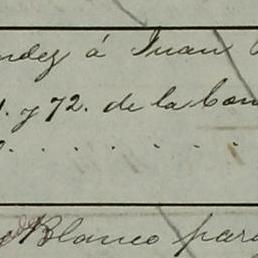 ndez á Juan
. y 72. de la Com
. . . . . .
Blanco para